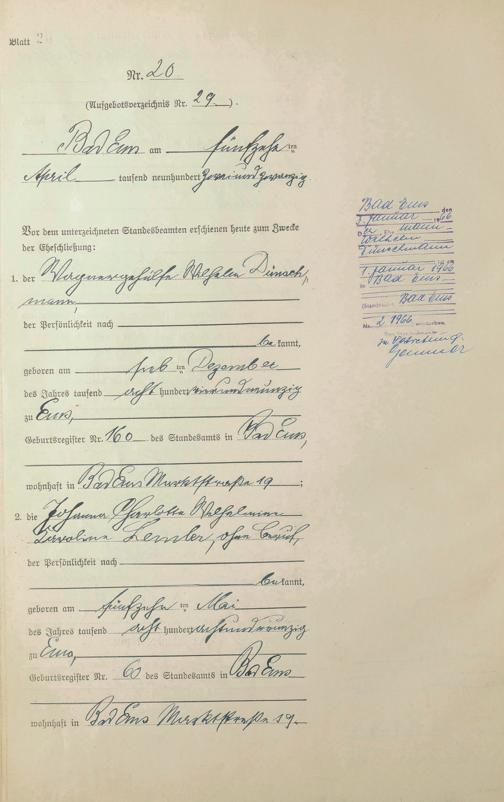 Blatt 2
Nr. 20
(Aufgebotsverzeichnis Nr. 29).
Bad Ems am fünfzehn ten
April tausend neunhundert zweiundzwanzig
Vor dem unterzeichneten Standesbeamten erschienen heute zum Zwecke
der Eheschließung:
1. der Wagnergehülfe Wilhelm Dünsch/
mann,
der Persönlichkeit nach
be kannt,
geboren am ten Dezember
des Jahres tausend acht hundert vierundneunzig
zu Ems,
Geburtsregister Nr. 160 des Standesamts in Bad Ems,
wohnhaft in Bad Ems Marktstraße 19;
2. die Johanna Charlotte Wilhelmine
Karoline, ohne Beruf,
der Persönlichkeit nach
be kannt,
geboren am fünfzehn ten Mai
des Jahres tausend acht hundert achtundneunzig
zu Ems,
Geburtsregister Nr. 60 des Standesamts in Bad Ems
wohnhaft in Bad Ems Marktstraße 19.
Bad Ems den
3. Januar 1966
Wilhelm
Dünschmann
1. Januar 1966
Bad Ems
Bad Ems
Nr. 2 1966
In Vertretung.